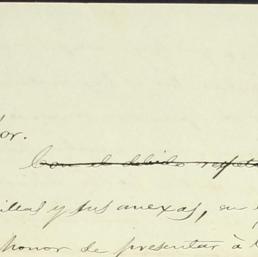 or.
Con el debido respeto
illas y sus anexas, en
honor de presentar á